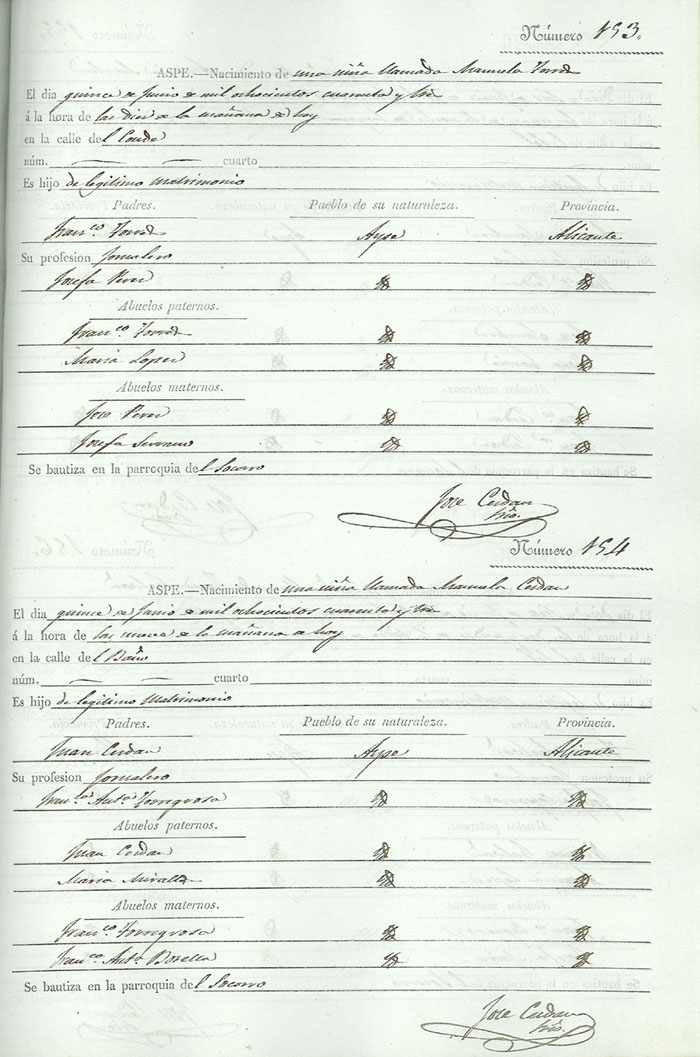 Número 153.
ASPE.—Nacimiento de una niña llamada Manuela Torres
El dia quince de Junio de mil ochocientos cuarenta y tres
á la hora de las diez de la mañana de hoy
en la calle del Conde
núm. — — cuarto
Es hijo de legitimo Matrimonio
Padres. Pueblo de su naturaleza. Provincia.
Franco Torres Aspe Alicante
Su profesion Jornalero
Josefa Perez
Abuelos paternos.
Franco Torres
Maria Lopez
Abuelos maternos.
Jose Perez
Josefa Serrano
Se bautiza en la parroquia del Socorro
Jose Cerdan
Número 154
ASPE.—Nacimiento de una niña llamada Manuela Cerdan
El dia quince de Junio de mil ochocientos cuarenta y tres
á la hora de las nueve de la mañana de hoy
en la calle del Baño
núm. — — cuarto
Es hijo de legitimo Matrimonio
Padres. Pueblo de su naturaleza. Provincia.
Juan Cerdan Aspe Alicante
Su profesion Jornalero
Franca Anta Torregrosa
Abuelos paternos.
Juan Cerdan
Maria Miralles
Abuelos maternos.
Franco Torregrosa
Franca Anta Botella
Se bautiza en la parroquia del Socorro
Jose Cerdan